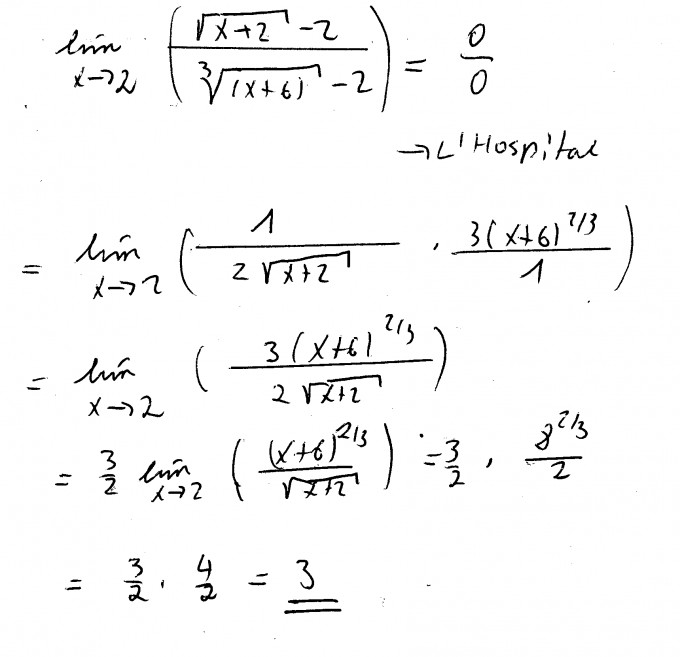 lim x→2 ( (√(x+2) - 2) / (∛(x+6) - 2) ) = 0/0
→ L'Hospital
= lim x→2 ( 1 / (2√(x+2)) · 3(x+6)^(2/3) / 1 )
= lim x→2 ( 3(x+6)^(2/3) / (2√(x+2)) )
= 3/2 lim x→2 ( (x+6)^(2/3) / √(x+2) ) = 3/2 · 8^(2/3) / 2
= 3/2 · 4/2 = 3